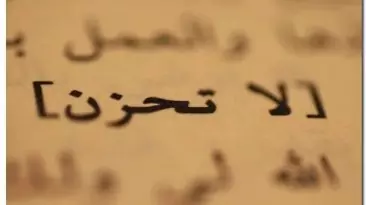 والعمل
[لا تحزن]
الله لي